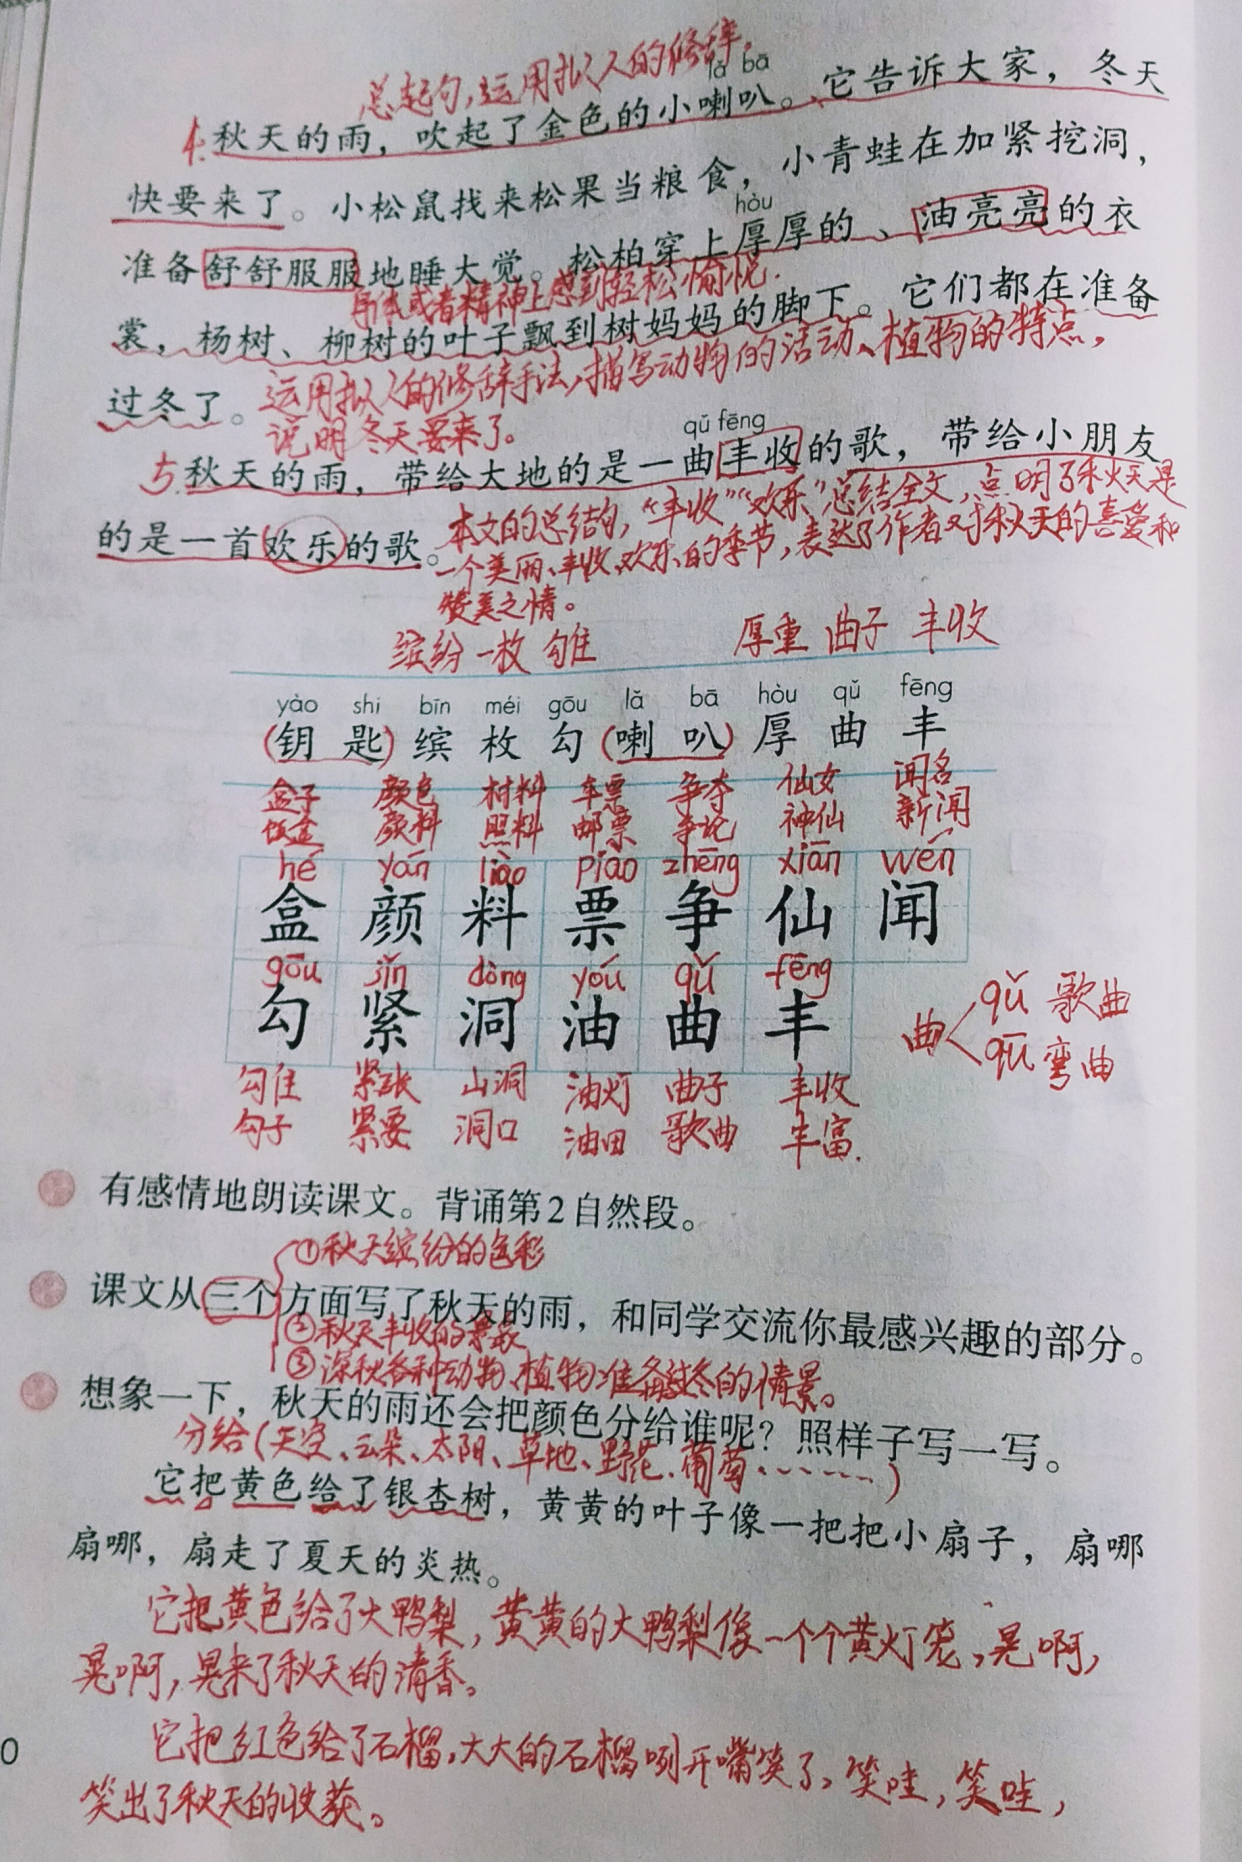 总起句,运用拟人的修辞。
lǎ bā
4.秋天的雨，吹起了金色的小喇叭。它告诉大家，冬天
快要来了。小松鼠找来松果当粮食，小青蛙在加紧挖洞，
hòu
准备舒舒服服地睡大觉。松柏穿上厚厚的、油亮亮的衣
身体或者精神上感到轻松愉悦.
裳，杨树、柳树的叶子飘到树妈妈的脚下。它们都在准备
运用拟人的修辞手法,描写动物的活动、植物的特点,
过冬了。
说明冬天要来了。
qǔ fēng
5.秋天的雨，带给大地的是一曲丰收的歌，带给小朋友
本文的总结句,“丰收”“欢乐”总结全文,点明了秋天是
的是一首欢乐的歌。
一个美丽、丰收、欢乐的季节,表达了作者对秋天的喜爱和
赞美之情。
缤纷 一枚 勾住 厚重 曲子 丰收
yào shi bīn méi gōu lǎ bā hòu qǔ fēng
(钥匙) 缤 枚 勾 (喇叭) 厚 曲 丰
盒子 颜色 材料 车票 争夺 仙女 闻名
饭盒 颜料 照料 邮票 争论 神仙 新闻
hé yán liào piào zhēng xiān wén
盒 颜 料 票 争 仙 闻
gōu jǐn dòng yóu qǔ fēng
勾 紧 洞 油 曲 丰
曲 qǔ 歌曲
qū 弯曲
勾住 紧张 山洞 油灯 曲子 丰收
勾子 紧要 洞口 油田 歌曲 丰富.
有感情地朗读课文。背诵第2自然段。
①秋天缤纷的色彩
课文从三个方面写了秋天的雨，和同学交流你最感兴趣的部分。
②秋天丰收的景象
③深秋各种动物、植物准备过冬的情景。
想象一下，秋天的雨还会把颜色分给谁呢？照样子写一写。
分给(天空、云朵、太阳、草地、野花、葡萄······)
它把黄色给了银杏树，黄黄的叶子像一把把小扇子，扇哪
扇哪，扇走了夏天的炎热。
它把黄色给了大鸭梨,黄黄的大鸭梨像一个个黄灯笼,晃啊,
晃啊,晃来了秋天的清香。
它把红色给了石榴,大大的石榴咧开嘴笑了,笑哇,笑哇,
0
笑出了秋天的收获。